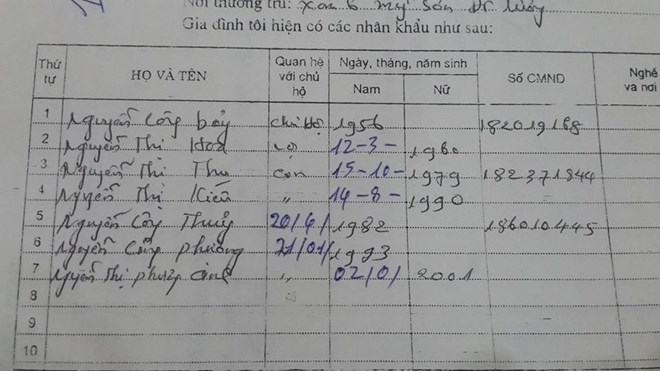 Nơi thường trú: Xóm 6 Mỹ Sơn
Gia đình tôi hiện có các nhân khẩu như sau:
Thứ tự HỌ VÀ TÊN Quan hệ với chủ hộ Ngày, tháng, năm sinh Số CMND Nghề và nơi
Nam Nữ
1 Nguyễn Công Bảy Chủ hộ 1956 182019168
2 Nguyễn Thị Hoà Vợ 12-3- 1960
3 Nguyễn Thị Thu Con 15-10- 1979 182371844
4 Nguyễn Thị Kiều " 14-8- 1990
5 Nguyễn Công Thuỷ 20/4/ 1982 186010445
6 Nguyễn Công Phượng 21/01/ 1993
7 Nguyễn Thị Phượng " 02/01 2001
8
9
10